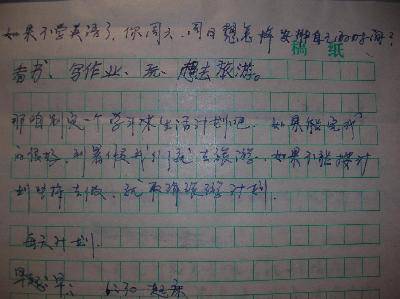 如果不学英语了,你周六、周日想怎样安排自己的时间?
稿 纸
看书、写作业、玩、想去旅游。
那咱制定一个学习和生活计划吧。如果能完成
的很好,到暑假我们就去旅游,如果不能按计
划安排去做,就取消旅游计划.
每天计划.
早起早: 6:30 起床